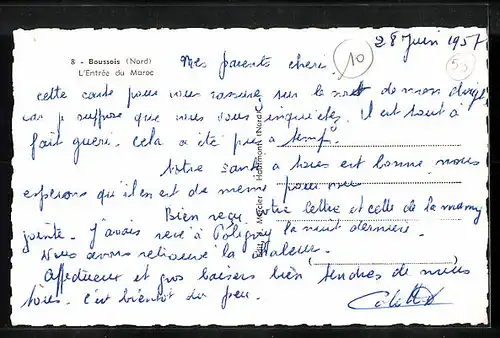 8 - Boussois (Nord)
L'Entrée du Maroc
28 Juin 1957
10
Mes parents chéri
cette carte pour vous rassurer sur le de mon
car je suppose que vous vous inquiétez. Il est tout à
fait guéri. cela a été pris à temps
Notre santé à tous est bonne nous
espérons qu'il en est de même pour
Bien reçu votre lettre et celle de la mamy
jointe. J'avais rêvé à Poligny la nuit dernière.
Nous avons retrouvé la chaleur.
Affectueux et gros baisers bien tendres de nous
tous. C'est bientôt
Colette